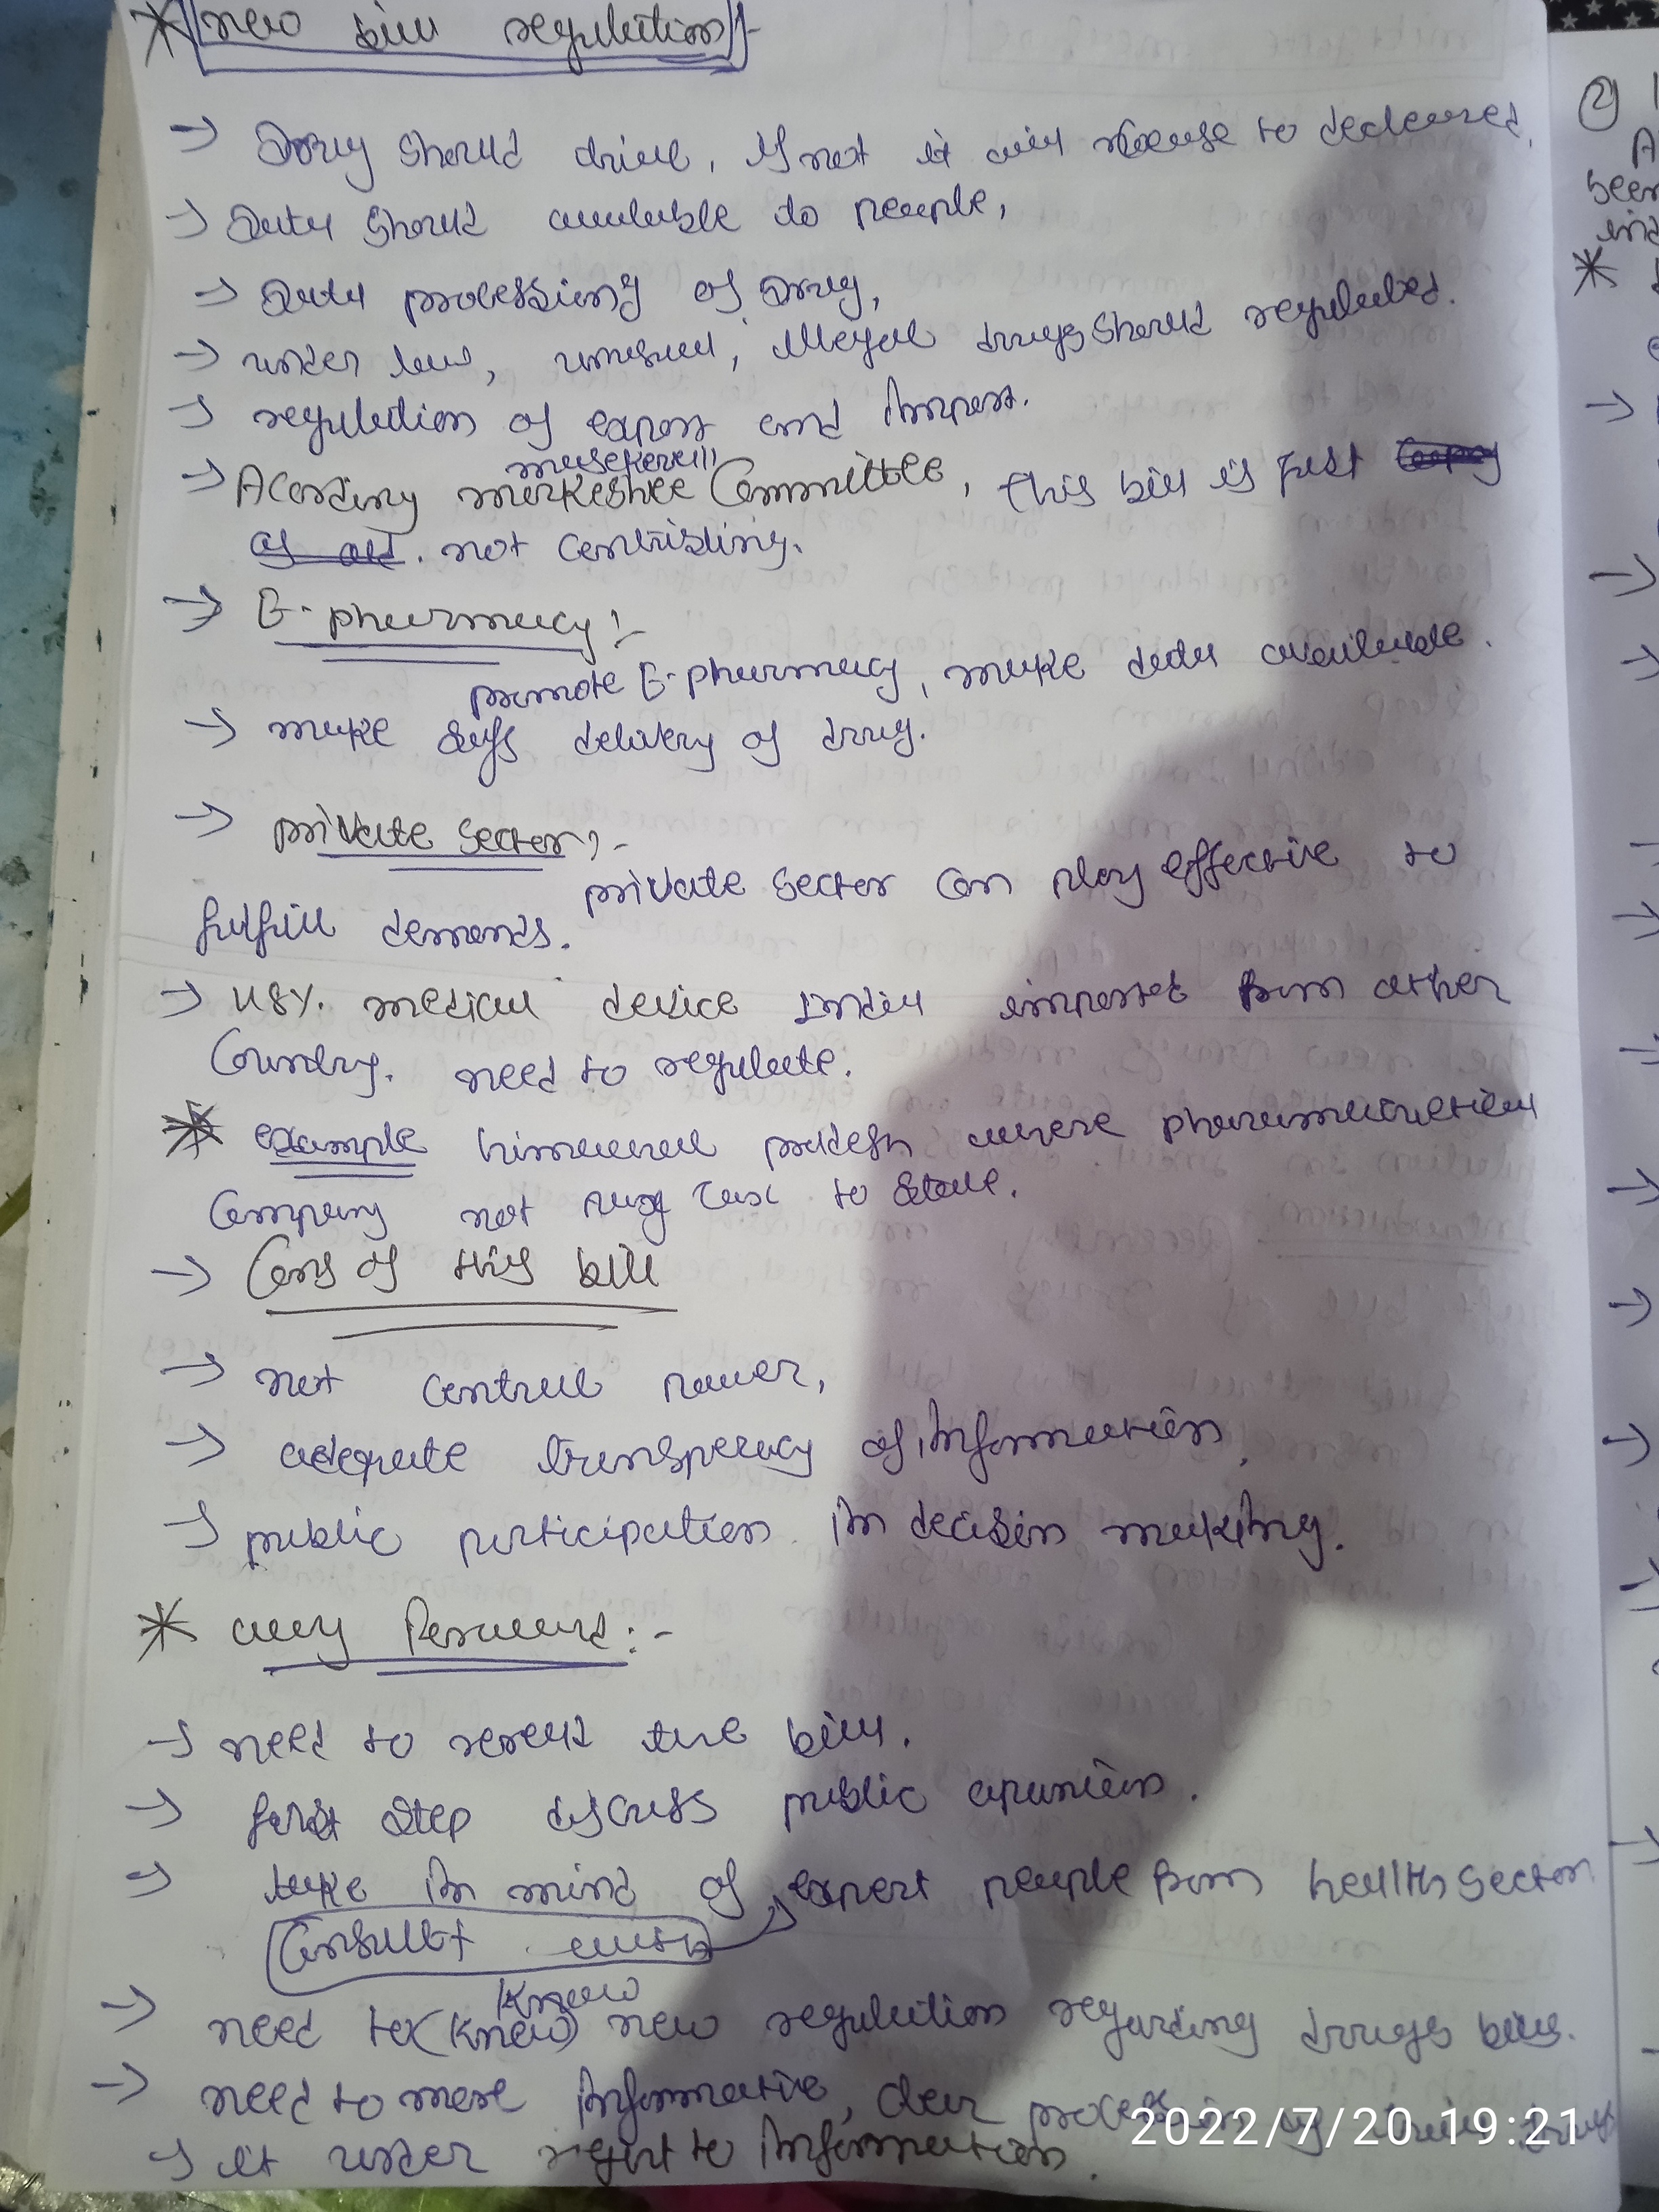 * new bill regulation :-
→ Drug should , if not it will to declared.
→ Data should available to people,
→ Data processing of Drug,
→ under law, unusual, illegal drugs should regulated.
→ regulation of export and import.
masekerall
→ According Committee, this bill is just
not
→ E-pharmacy :-
promote E-pharmacy, make data available.
→ make safe delivery of drug.
→ private sector :-
private sector can play effective to
fulfill demands.
→ medical device India import from other
Country. need to regulate.
* example himachal pradesh where pharmaceutical
Company not pay tax to state.
→ Cons of this bill
→ not control power,
→ adequate transperacy of information,
→ public participation in decision making.
* way forward :-
→ need to the bill.
→ first step discuss public opinion.
→ take in mind of expert people from health sector
Consult with
know
→ need to (know) new regulation regarding drugs bills.
→ need to more informative, clear processing of
→ it under right to information.
2022/7/20 19:21
2
A
been
ind
*